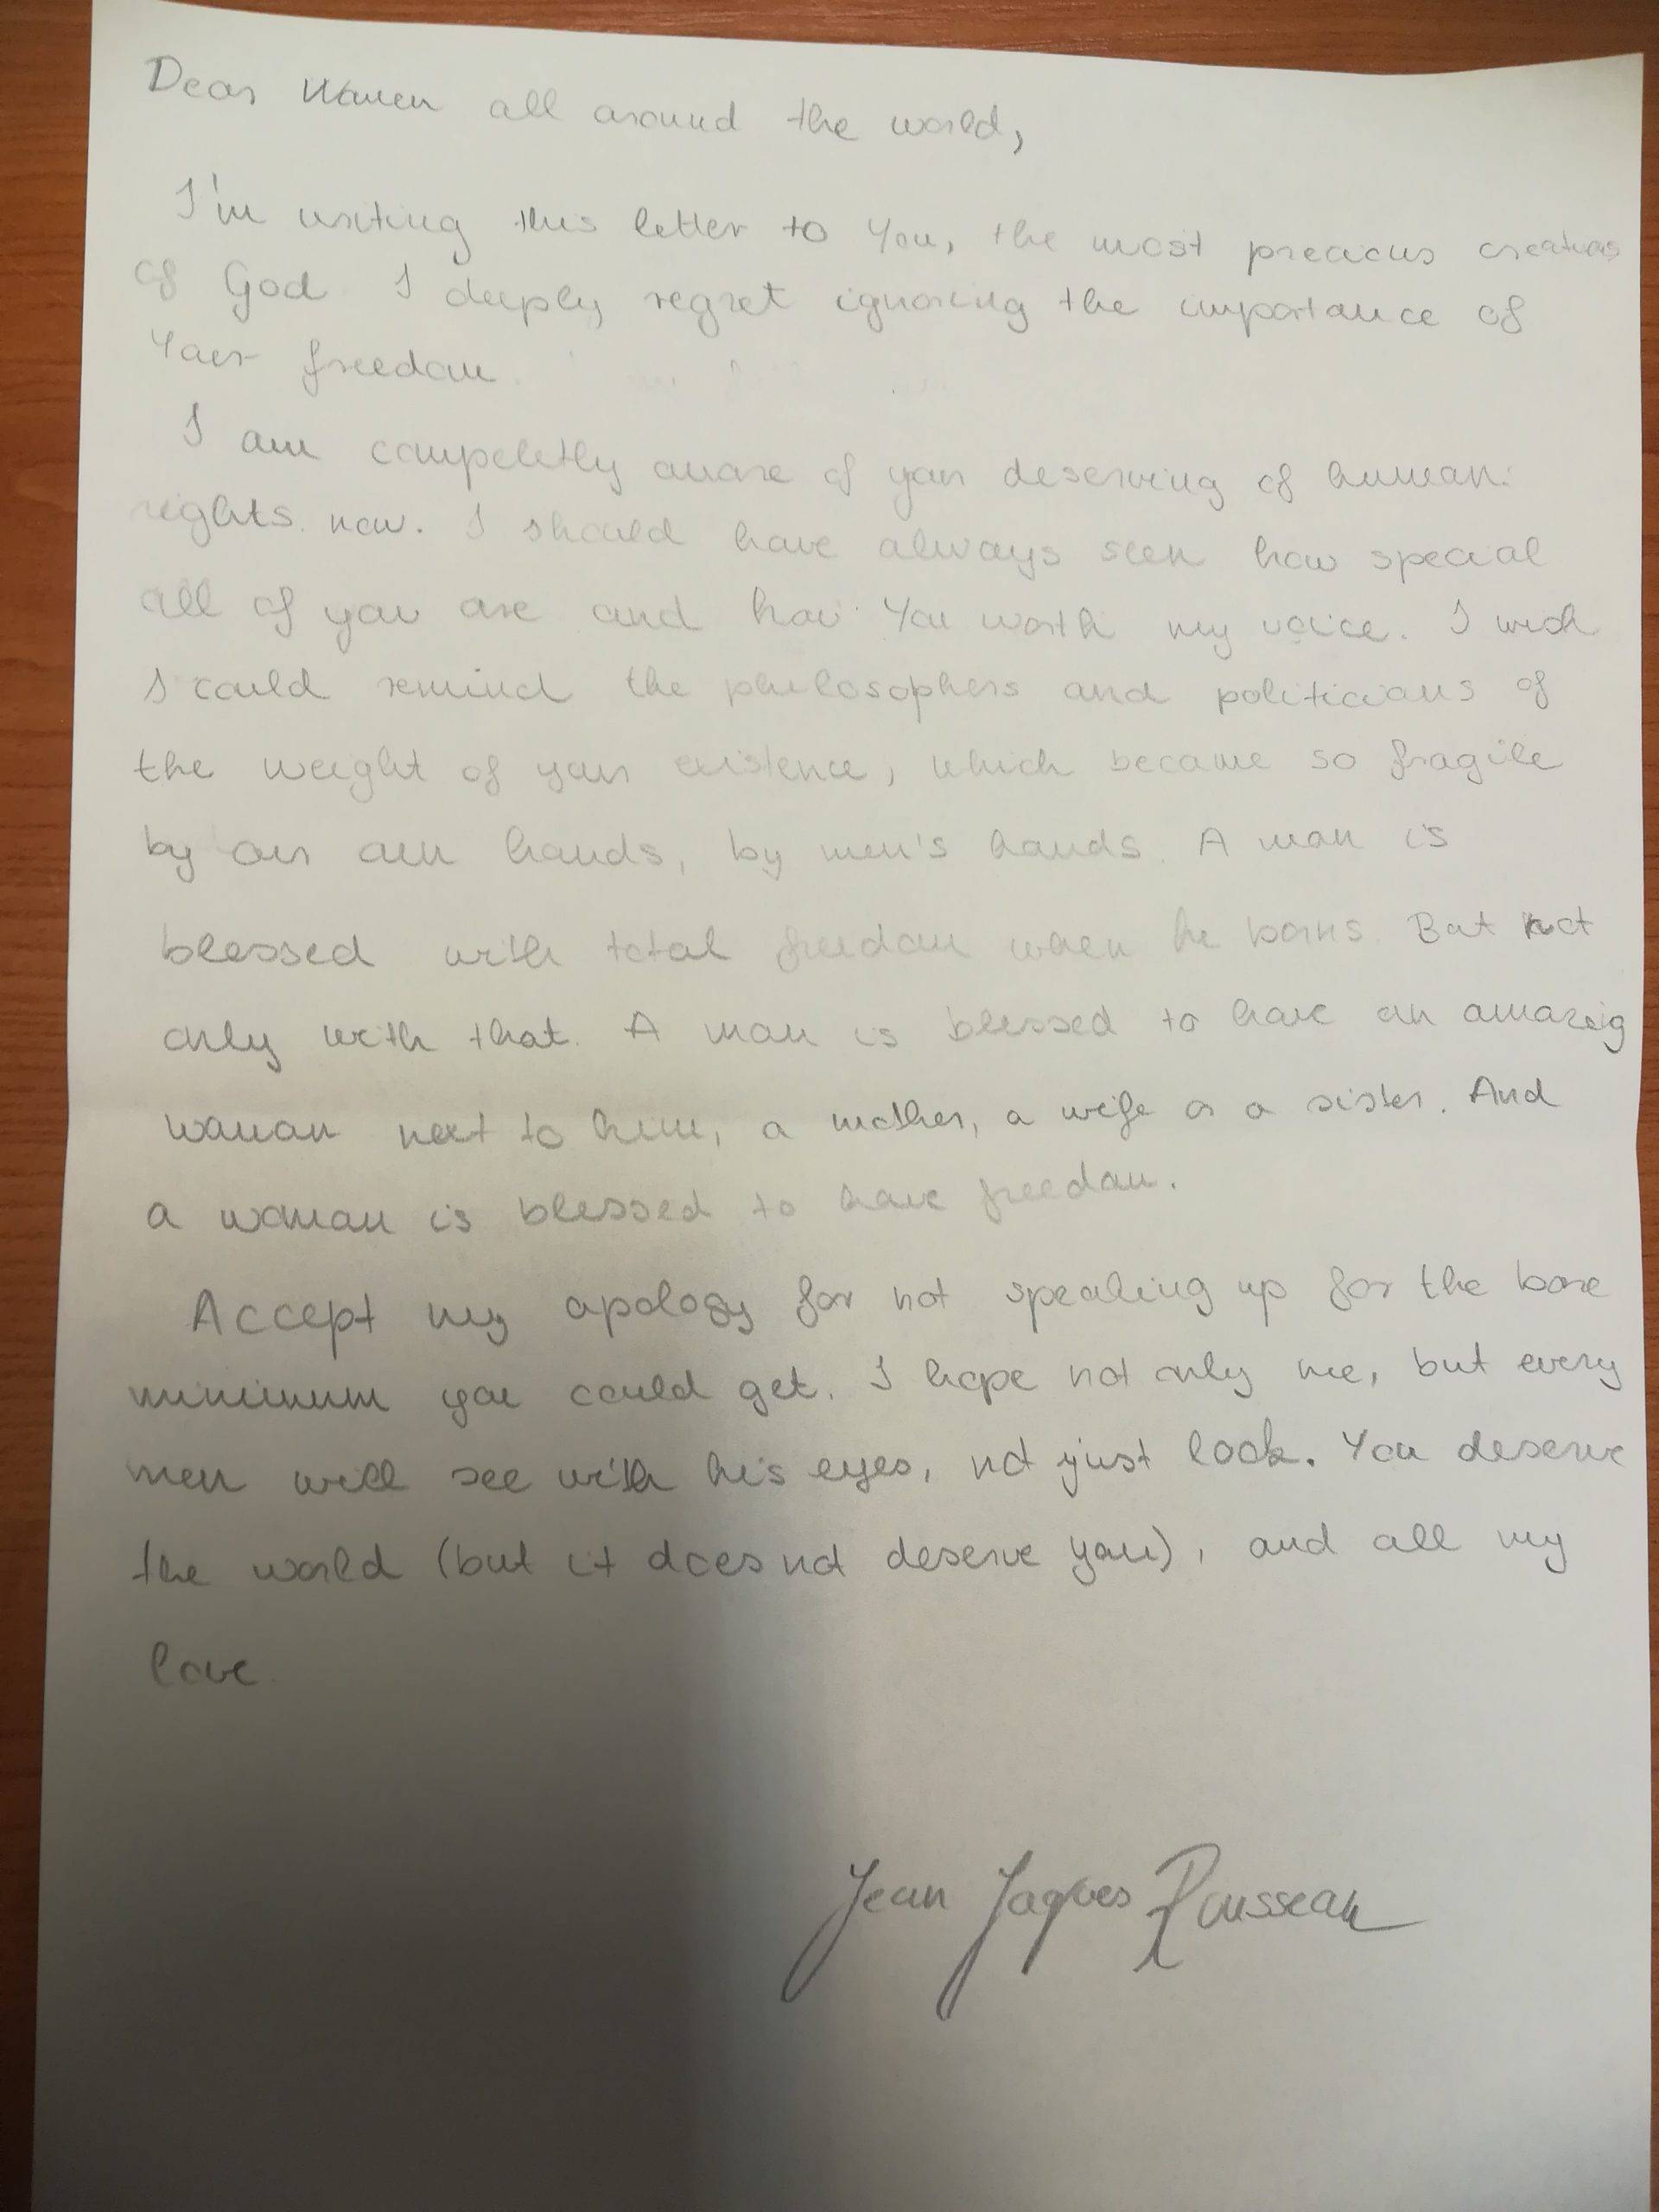 Dear Women all around the world,
I'm writing this letter to You, the most precious creations
of God. I deeply regret ignoring the importance of
Your freedom.
I am compeletly aware of your deserving of human
rights now. I should have always seen how special
all of you are and how You worth my voice. I wish
I could remind the philosophers and politicians of
the weight of your existence, which became so fragile
by our own hands, by men's hands. A man is
blessed with total freedom when he borns. But not
only with that. A man is blessed to have an amazig
woman next to him, a mother, a wife or a sister. And
a woman is blessed to have freedom.
Accept my apology for not speaking up for the bare
minimum you could get. I hope not only me, but every
men will see with his eyes, not just look. You deserve
the world (but it does not deserve you), and all my
love.
Jean Jaques Rousseau